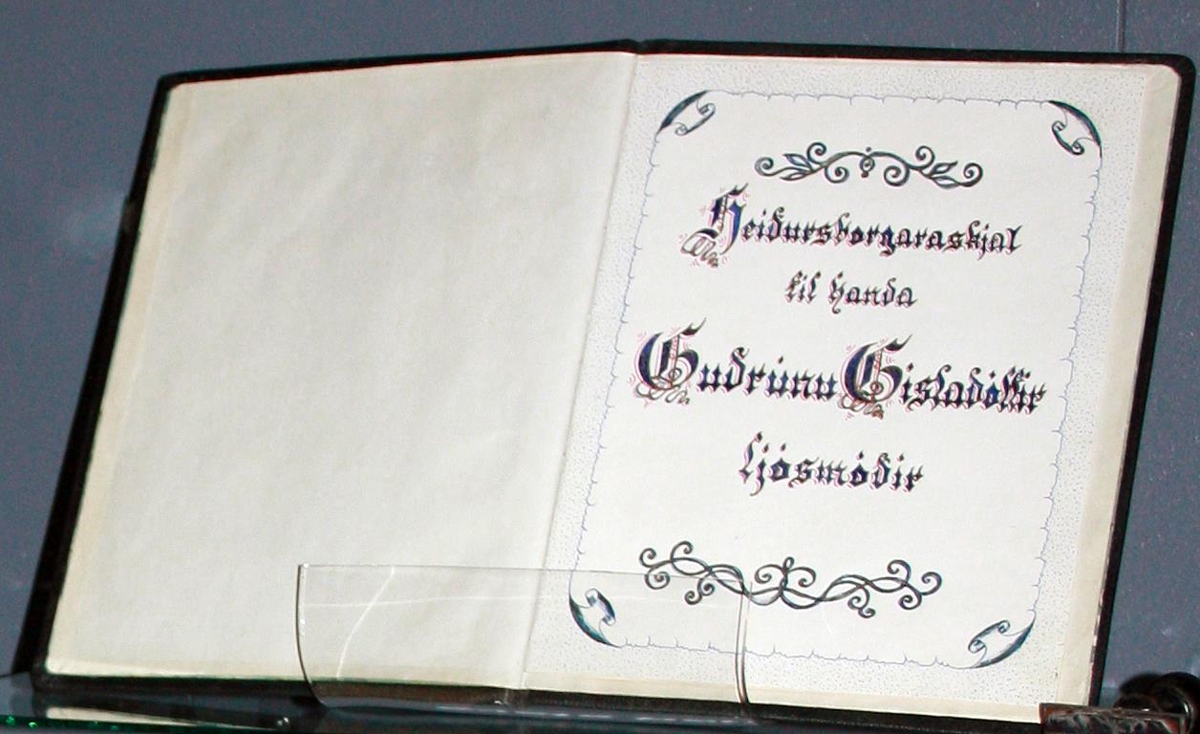 Heiðursborgaraskjal
til handa
Guðrúnu Gísladóttir
ljósmóðir